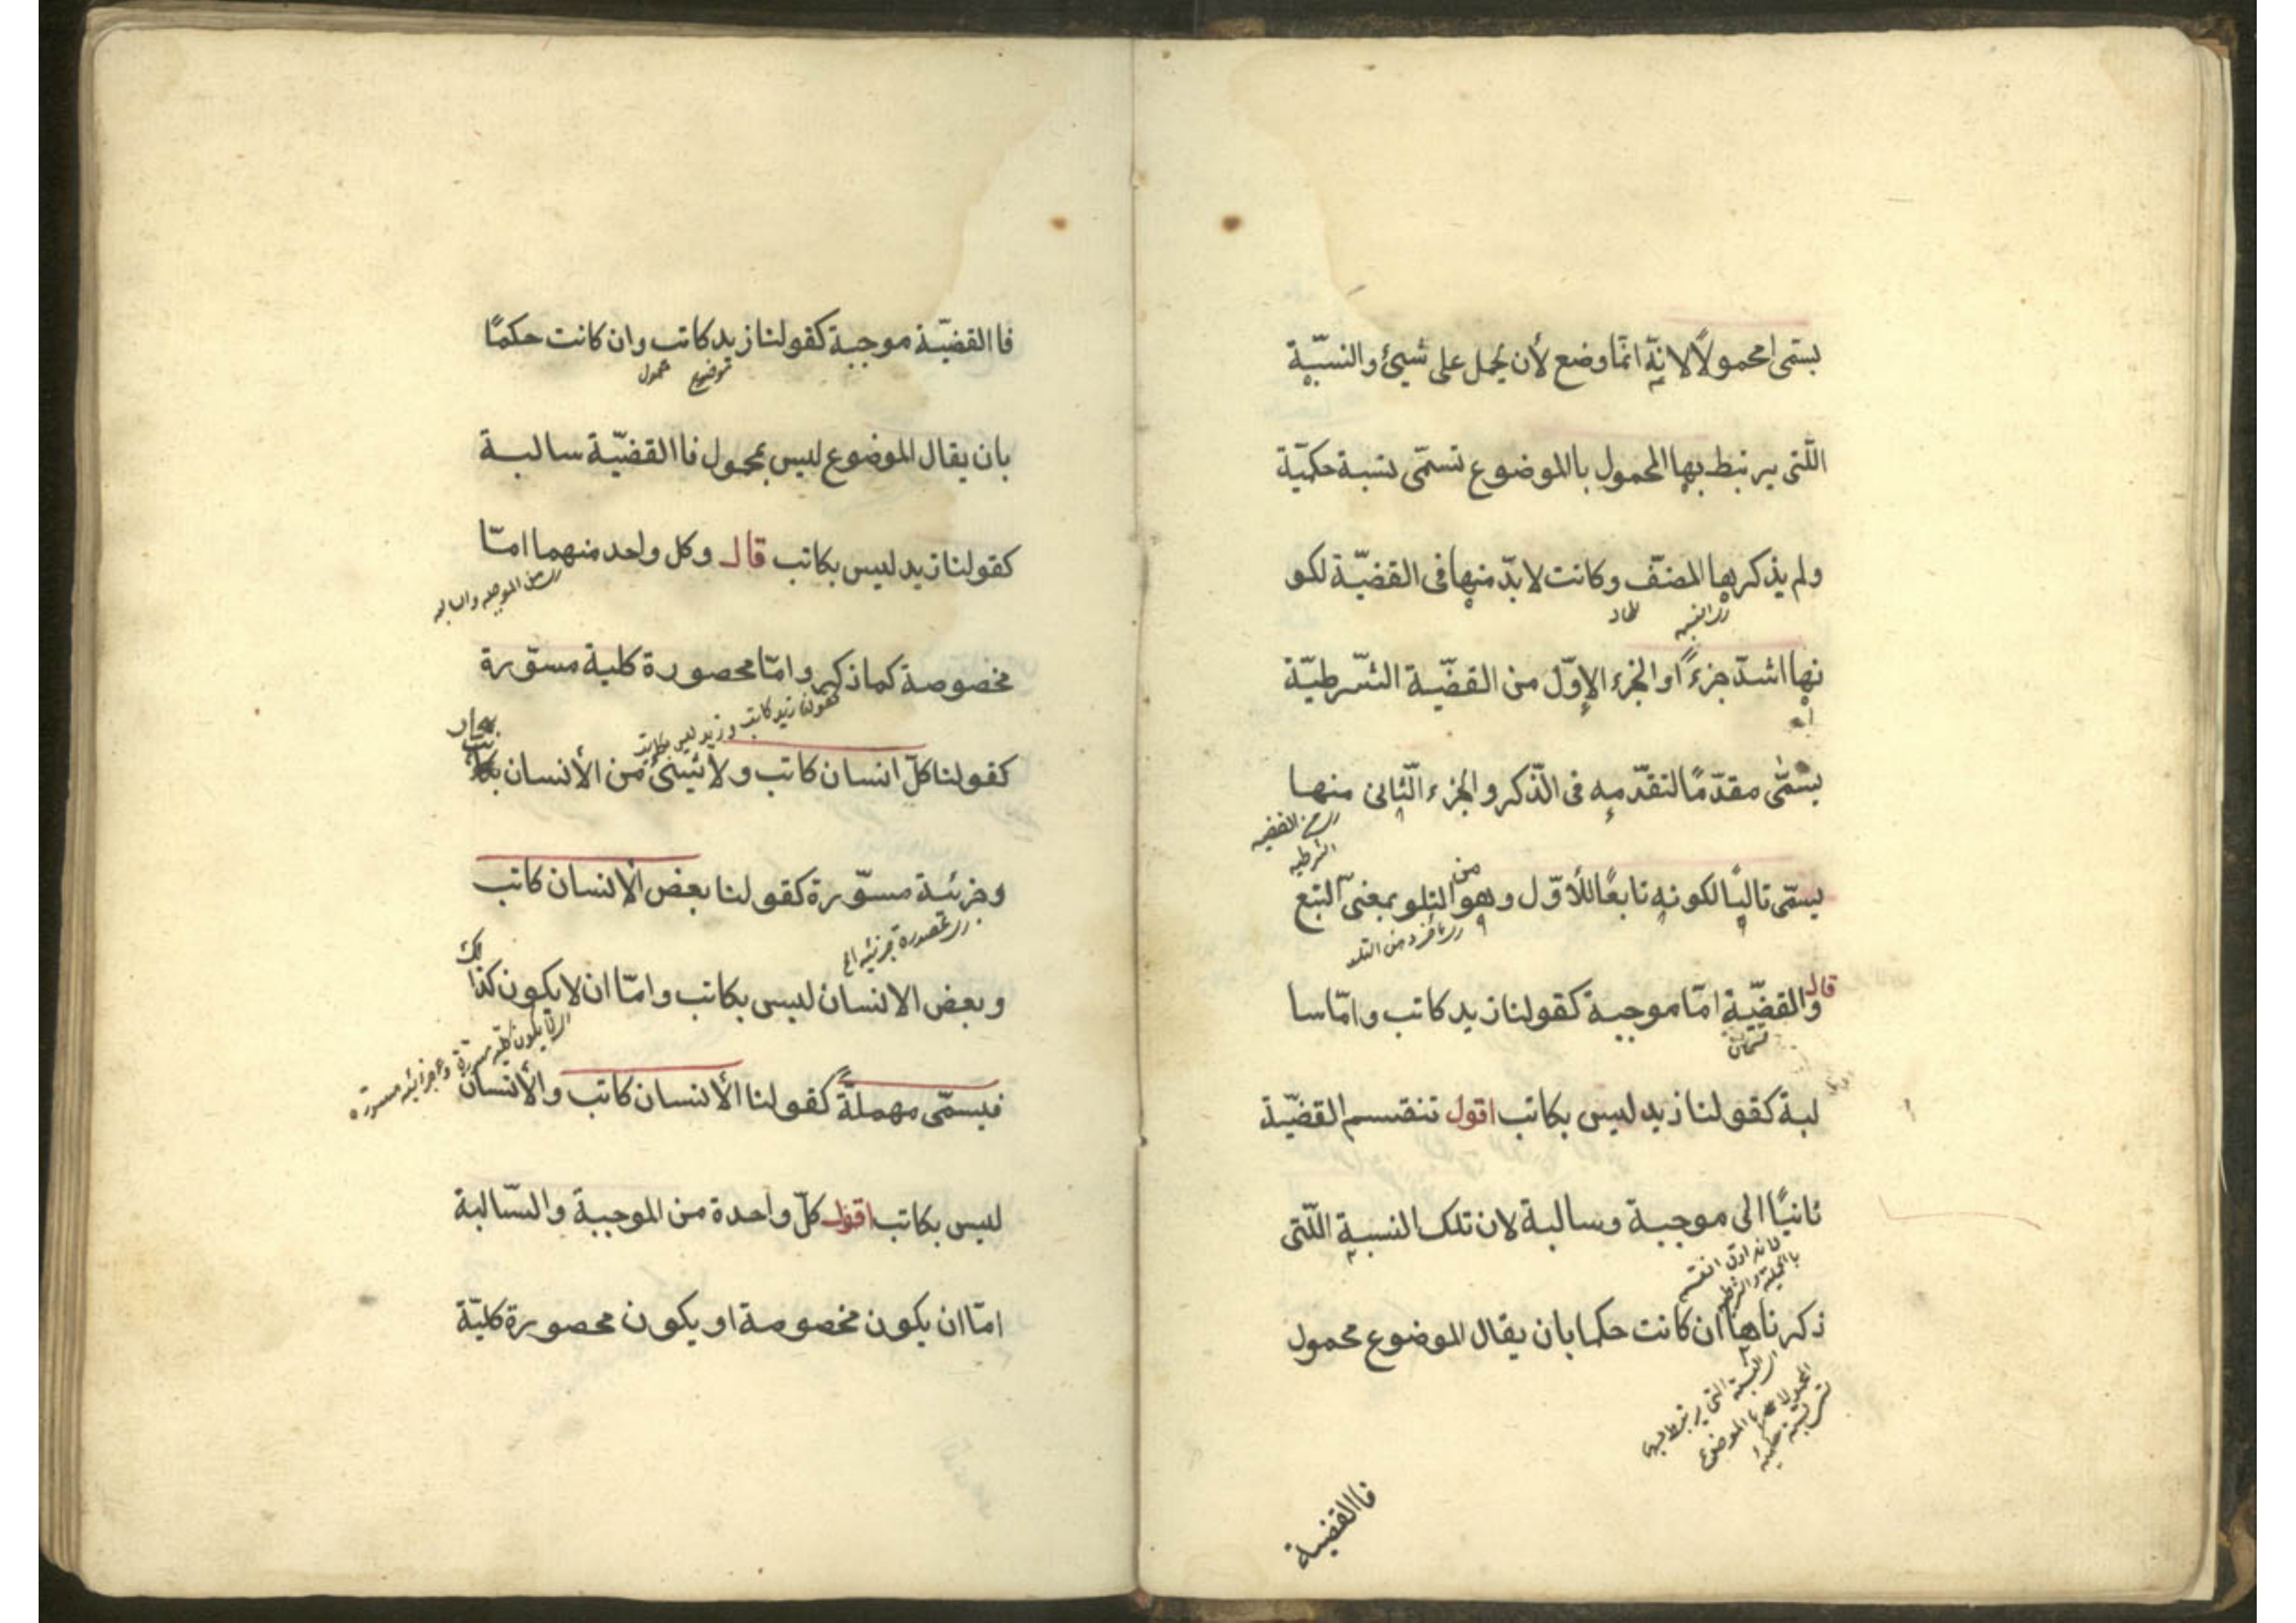 يسمّى محمولاً لانّه انّما وضع لأن يحمل على شيئ والنسبة
اللّتى يرتبط بها المحمول باالموضوع تسمّى نسبة حكميّة
ولم يذكرها المصنّف وكانت لا بدّ منها فى القضيّة لكو
اى النسبة
نها اشدّ جزءً او الجزء الاوّل من القضيّة الشّرطيّة
يسمّى مقدّمًا لتقدّمه فى الّذكر والجزء الثّانى منها
اى من القضيه الشرطيه
يسمّى تاليًا لكونه تابعًا للأوّل وهو من التلو بمعنى التبع
قال والقضيّة امّا موجبة كقولنا زيد كاتب وامّا سا
لبة كقولنا زيد ليس بكاتب اقول تنقسم القضيّة
ثانيًا الى موجبة وسالبة لان تلك النسبة اللّتى
ذكرناها ان كانت حكما بان يقال الموضوع محمول
اى النسبة التى يرتبط بها
فاالقضية
فاالقضيّة موجبة كقولنا زيد كاتب وان كانت حكمًا
موضوع محمول
بان يقال الموضوع ليس بمحمول فاالقضيّة سالبة
كقولنا زيد ليس بكاتب قال وكل واحد منهما امّا
اى من الموجبه والسالبه
مخصوصة كما ذكر وامّا محصورة كلية مسوّرة
كقولنا زيد كاتب وزيد ليس بكاتب
كقولنا كلّ انسان كاتب ولا شيئ من الأنسان بكاتب
وجزئية مسوّرة كقولنا بعض الأانسان كاتب
اى محصورة جزئيه الخ
وبعض الانسان ليس بكاتب وامّا ان لا يكون كذلك
فيسمّى مهملةً كقولنا الأانسان كاتب والأنسان
ليس بكاتب اقول كلّ واحدة من الموجبة والسّالبة
امّا ان يكون مخصوصة او يكون محصورة كليّة